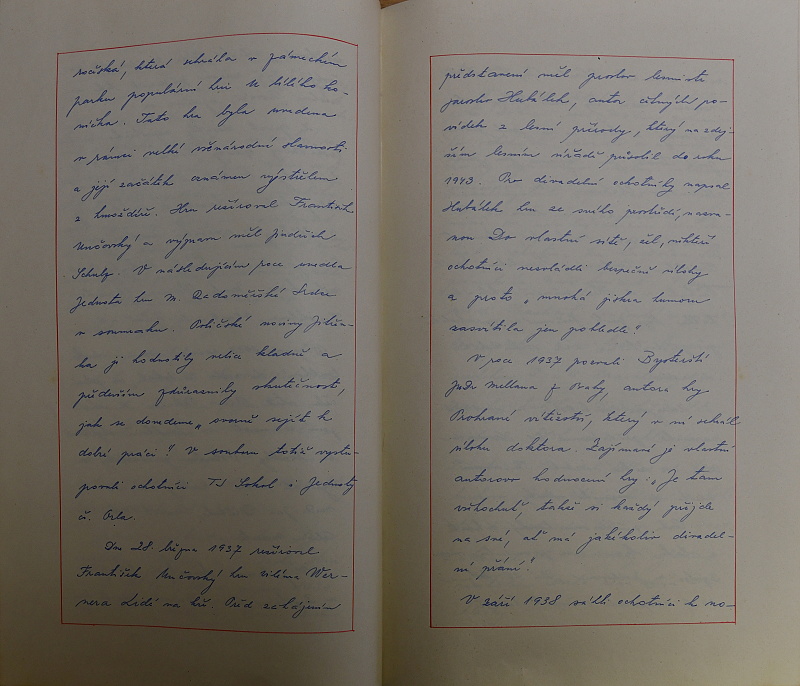 sočiská, která sehrála v zámeckém
parku populární hru U bílého ko-
níčka. Tato hra byla uvedena
v rámci velké věnárodné slavnosti
a její začátek oznámen výstřelem
z hmoždíře. Hru režíroval František
Unčovský a výpravu měl Jindřich
Schulz. V následujícím roce uvedla
Jednota hru M. Radoměřské Srdce
v soumraku. Poličské noviny Jitřen-
ka ji hodnotily velice kladně a
především zdůraznily skutečnost,
jak se dovedeme „svorně sejít k
dobré práci". V souboru totiž vystu-
povali ochotníci TJ Sokol i Jednoty
čs. Orla.
Dne 28. března 1937 režíroval
František Unčovský hru Viléma Wer-
nera Lidé na kře. Před zahájením
představení měl proslov lesmistr
Jaroslav Hubálek, autor čtivých po-
vídek z lesní přírody, který na zdej-
ším lesním úřadě působil do roku
1943. Pro divadelní ochotníky napsal
Hubálek hru ze svého prostředí, nazva-
nou Do vlastní sítě, žel, někteří
ochotníci nezvládli bezpečně úlohy
a proto „mnohá jiskra humoru
zasvítila jen pohledle."
V roce 1937 pozvali Bysterští
JUDr Mellana z Prahy, autora hry
Prohrané vítězství, který v ní sehrál
úlohu doktora. Zajímavé je vlastní
autorovo hodnocení hry: „Je tam
všehochuť, takže si každý přijde
na své, ať má jakékoliv divadel-
ní přání."
V září 1938 sáhli ochotníci k no-